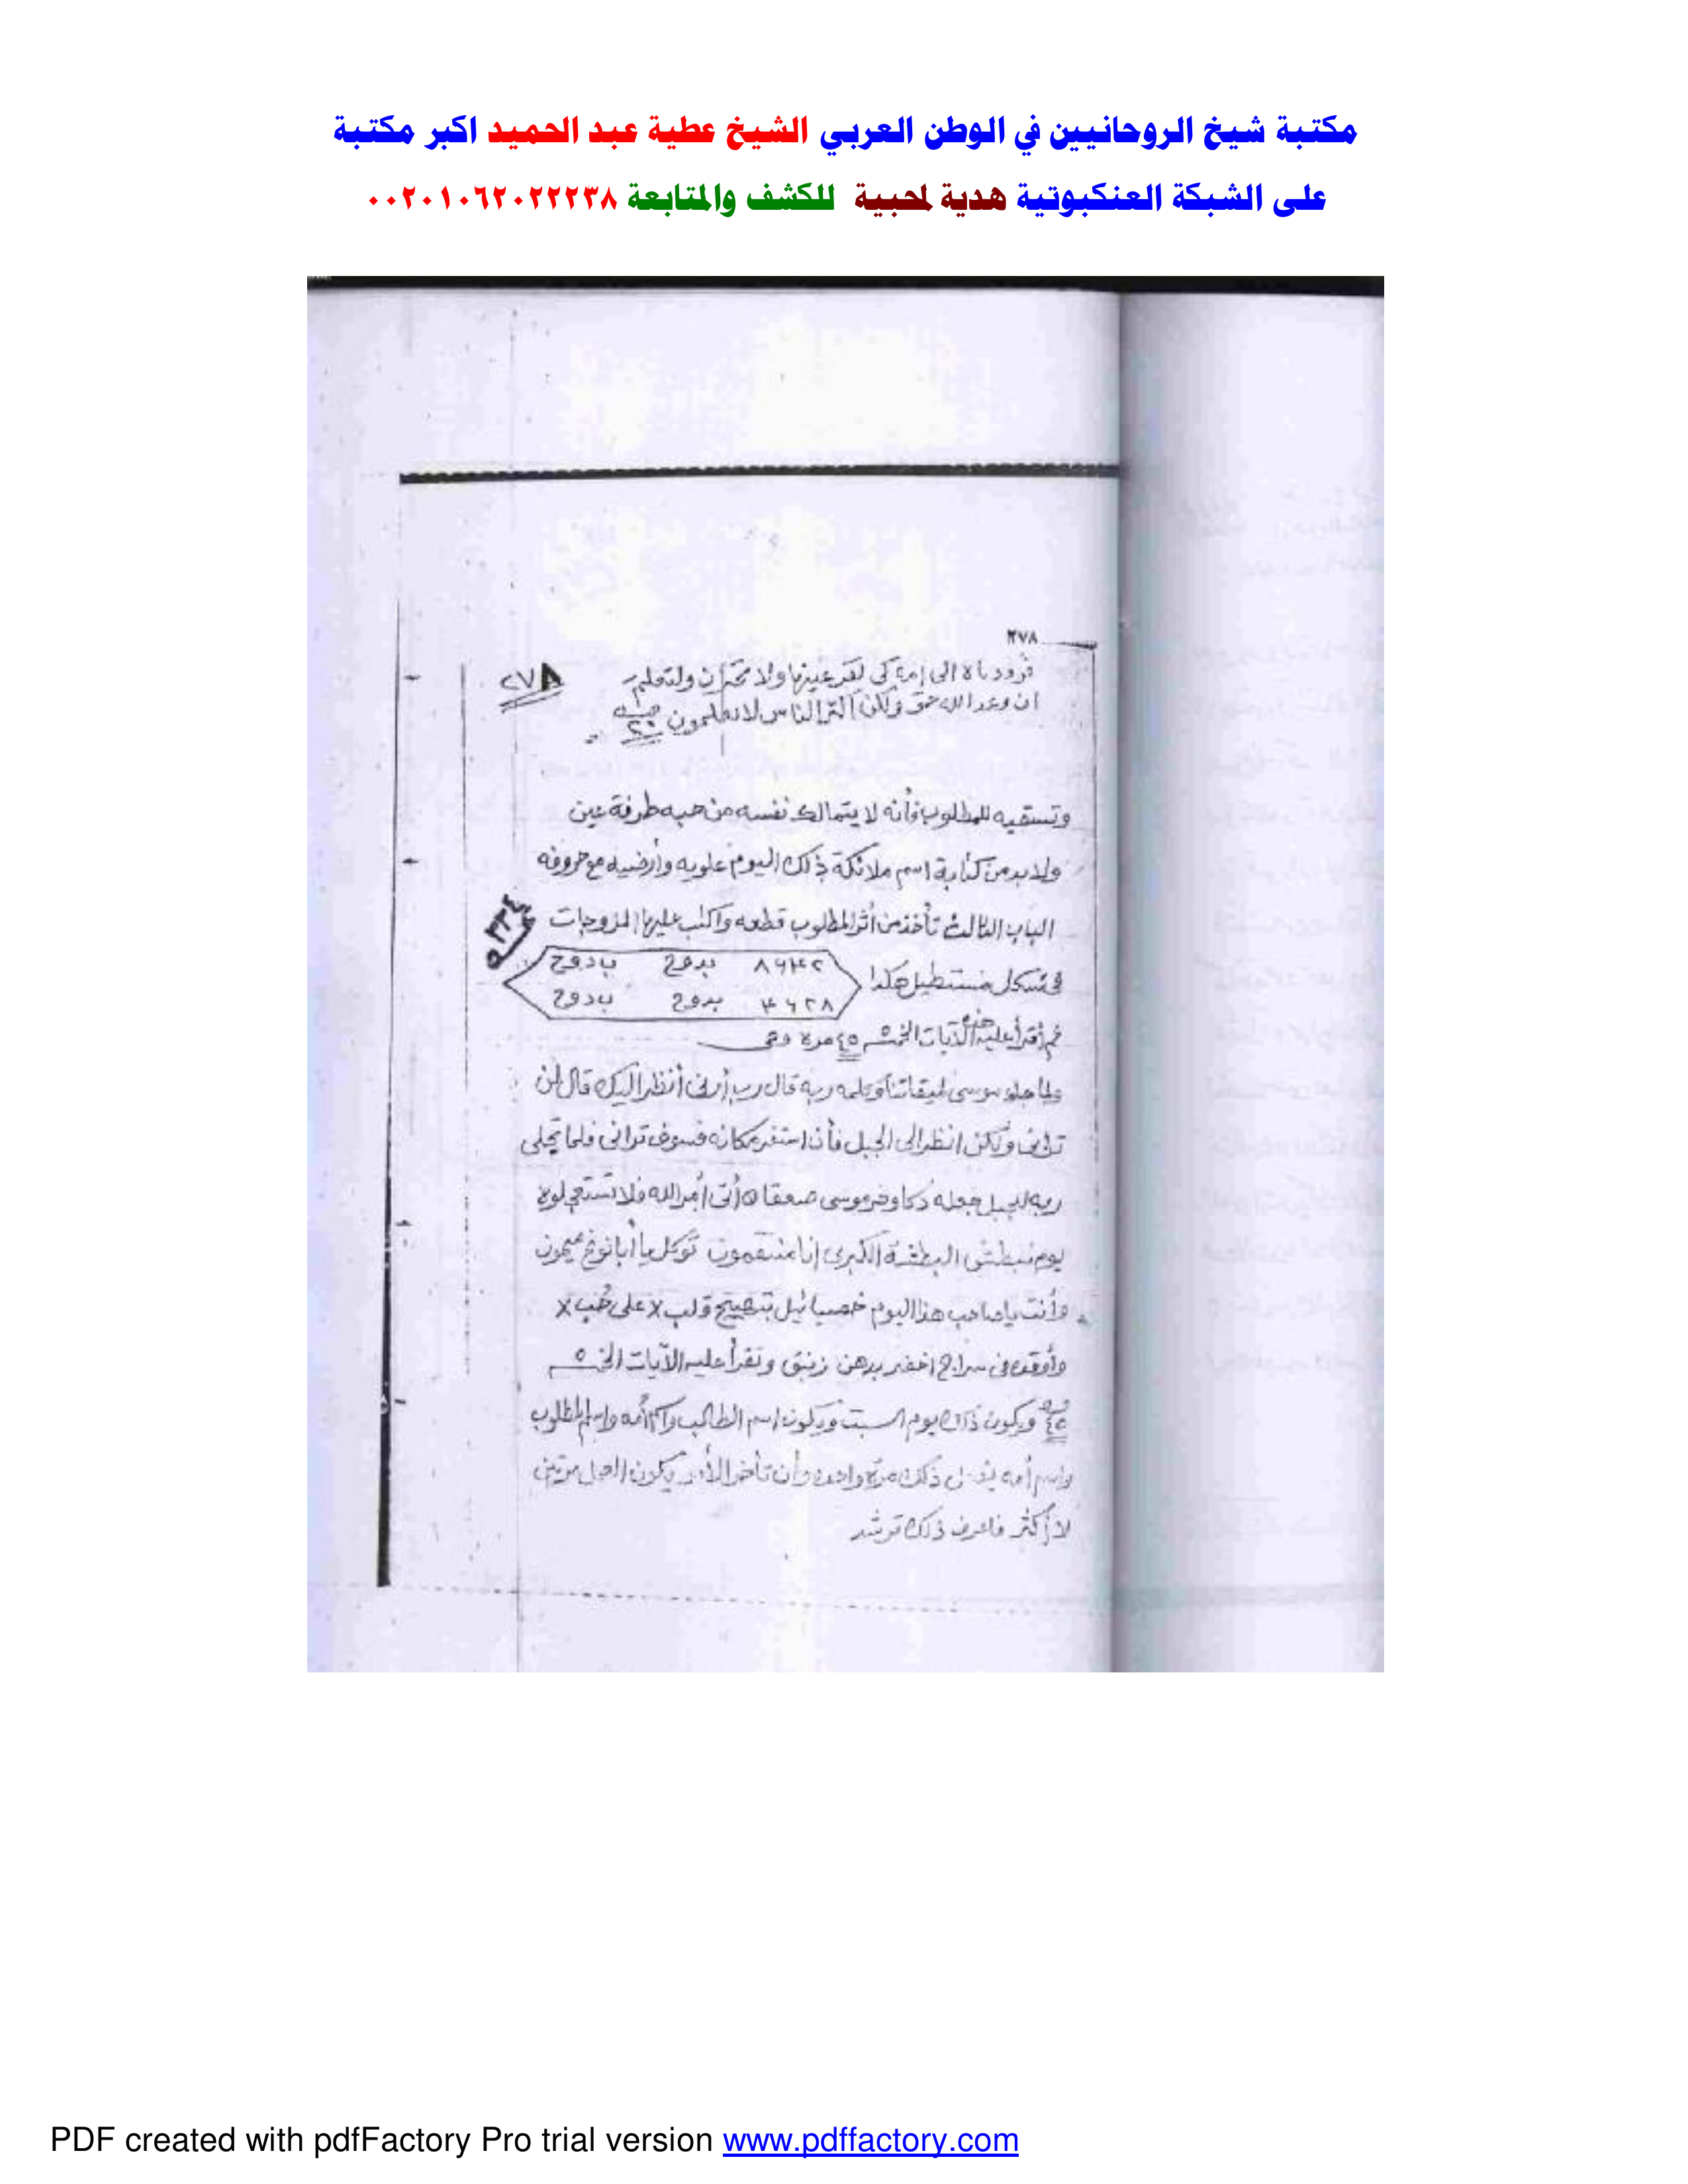 مكتبة شيخ الروحانيين في الوطن العربي الشيخ عطية عبد الحميد اكبر مكتبة
على الشبكة العنكبوتية هدية لمحبية للكشف والمتابعة ٠٠٢٠١٠٦٢٠٢٢٢٣٨
٢٧٨
فرددناه الى امه كى تقر عينها ولا تحزن ولتعلم
٢٧٨
ان وعد الله حق ولكن اكثر الناس لا يعلمون
وتسقيه للمطلوب فأنه لا يتمالك نفسه من حبه طرفة عين
ولا بد من كتابة اسم ملائكة ذلك اليوم علويه وأرضيه مع حروفه
الباب الثالث تأخذ من أثر المطلوب قطعه واكتب عليها المزوجات
فى شكل مستطيل هكذا
٨٦٤٢ بدوح بادوح
٤٦٢٨ بدوح بادوح
ثم اقرأ عليه هذه الآيات الخمسه ٤٥ مره وهى
ولما جاء موسى لميقاتنا وكلمه ربه قال رب أرنى أنظر اليك قال لن
ترانى ولكن انظر الى الجبل فأن استقر مكانه فسوف ترانى فلما تجلى
ربه للجبل جعله دكا وخر موسى صعقا ٥ أتى أمر الله فلا تستعجلوه
يوم نبطش البطشة الكبرى إنا منتقمون توكل يا أبا نوخ ميمون
وأنت ياصاحب هذا اليوم خصيائيل بتهييج قلب x على حُب x
وأوقده فى سراج اخضر بدهن زنبق وتقرأ عليه الآيات الخمسه
٤٥ ويكون ذلك يوم السبت ويكون اسم الطالب واسم أمه واسم المطلوب
واسم أمه ذلك مرة واحده وأن تأخر الأمر يكون العمل مرتين
لا أكثر فاعرف ذلك ترشد
PDF created with pdfFactory Pro trial version www.pdffactory.com